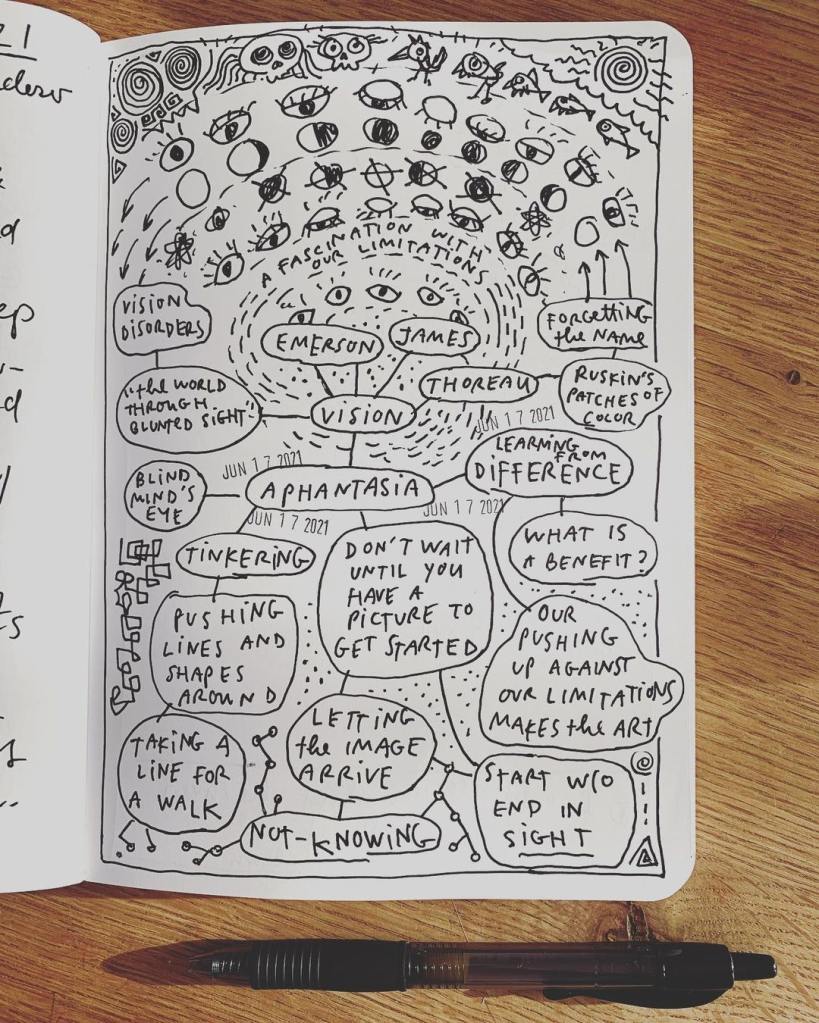 21
A FASCINATION WITH
OUR LIMITATIONS
VISION
DISORDERS
EMERSON
JAMES
FORGETTING
the NAME
"the WORLD
THROUGH
BLUNTED SIGHT"
VISION
THOREAU
RUSKIN'S
PATCHES OF
COLOR
JUN 17 2021
JUN 17 2021
LEARNING
FROM
DIFFERENCE
BLIND
MIND'S
EYE
APHANTASIA
JUN 17 2021
JUN 17 2021
TINKERING
DON'T WAIT
UNTIL YOU
HAVE A
PICTURE TO
GET STARTED
WHAT IS
A BENEFIT?
PUSHING
LINES AND
SHAPES
AROUND
OUR
PUSHING
UP AGAINST
OUR LIMITATIONS
MAKES the ART
TAKING A
LINE FOR
A WALK
LETTING
the IMAGE
ARRIVE
START W/O
END IN
SIGHT
NOT-KNOWING